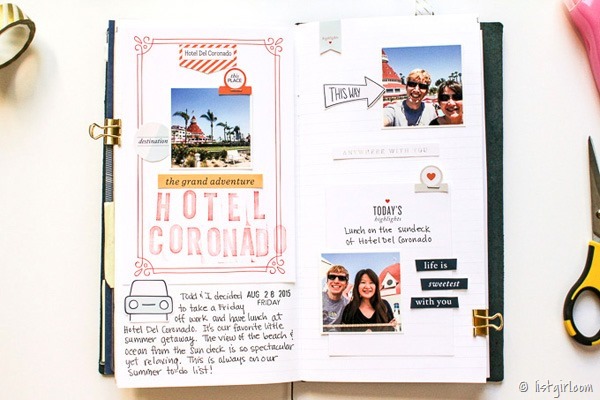 Hotel Del Coronado
this
PLACE
destination
the grand adventure
HOTEL
CORONADO
Todd & I decided
AUG 28 2015
FRIDAY
to take a Friday
off work and have lunch at
Hotel Del Coronado. It's our favorite little
summer getaway. The view of the beach &
ocean from the sun deck is so spectacular
yet relaxing. This is always on our
summer to do list!
highlights
THIS WAY
ANYWHERE WITH YOU
TODAY'S
highlights
Lunch on the sundeck
of Hotel Del Coronado
life is
sweetest
with you
© listgirl.com